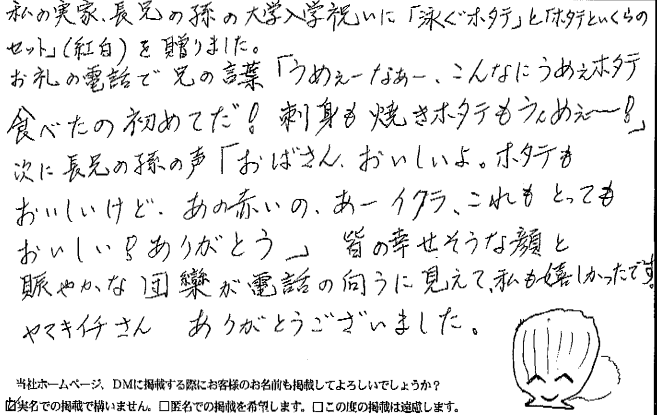 私の実家、長兄の孫の大学入学祝いに「泳ぐホタテ」と「ホタテといくらの
セット」(紅白)を贈りました。
お礼の電話で兄の言葉「うめぇーなぁー、こんなにうめぇホタテ
食べたの初めてだ! 刺身も焼きホタテもうんめぇ〜!」
次に長兄の孫の声「おばさん、おいしいよ。ホタテも
おいしいけど、あの赤いの、あーイクラ、これもとっても
おいしい!ありがとう」 皆の幸せそうな顔と
賑やかな団欒が電話の向うに見えて、私も嬉しかったです。
ヤマキイチさん ありがとうございました。
当社ホームページ、DMに掲載する際にお客様のお名前も掲載してよろしいでしょうか?
☑実名での掲載で構いません。□匿名での掲載を希望します。□この度の掲載は遠慮します。